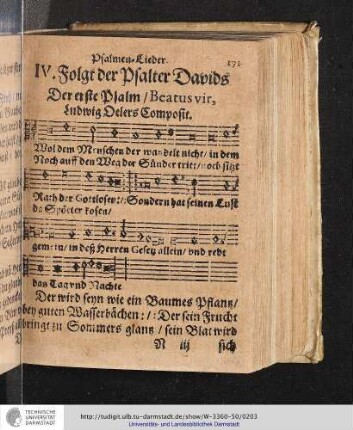 Psalmen-Lieder. 171
IV. Folgt der Psalter Davids
Der erste Psalm / Beatus vir,
Ludwig Oelers Composit.
Wol dem Menschen der wandelt nicht / in dem
Noch auff den Weg der Sünder tritt / noch sitzt
Rath der Gottlosen :/: Sondern hat seinen Lust
da Spötter kosen /
gemein / in deß Herren Gesetz allein / und redt
das Tag vnd Nachte
Der wird seyn wie ein Baumes Pflantz /
bey guten Wasserbächen :/: Der sein Frucht
bringt zu Sommers glantz / sein Blat wird
N iij sich
TECHNISCHE
UNIVERSITÄT
DARMSTADT
http://tudigit.ulb.tu-darmstadt.de/show/W-3360-50/0203
Universitäts- und Landesbibliothek Darmstadt